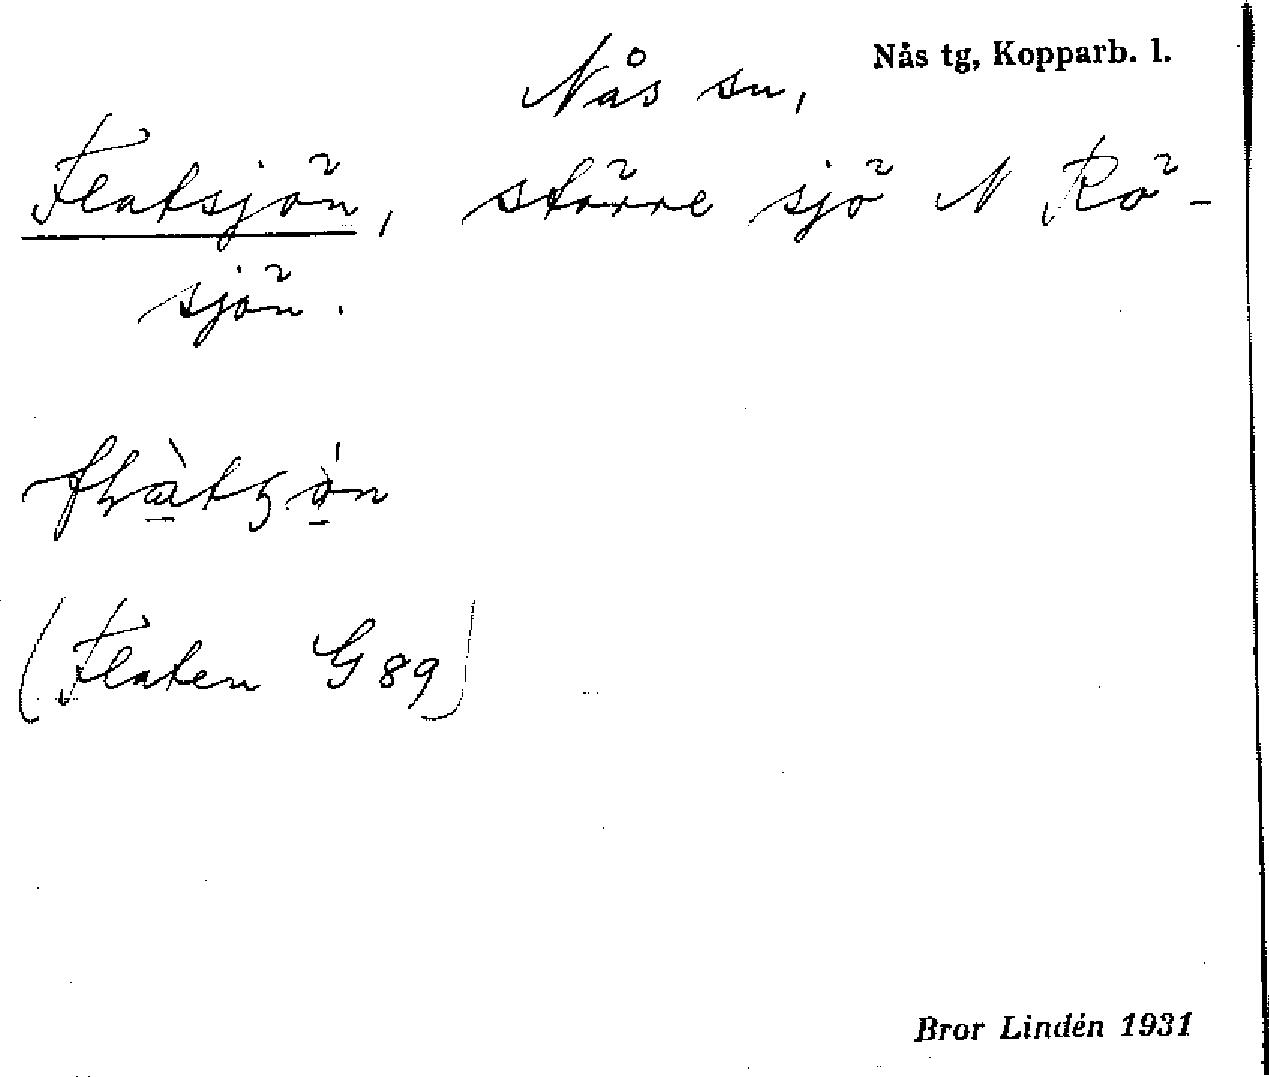 Nås tg, Kopparb. l.
Nås sn,
Flatsjön, större sjö N Rö-
sjön.
(Flaten G 89)
Bror Lindén 1931